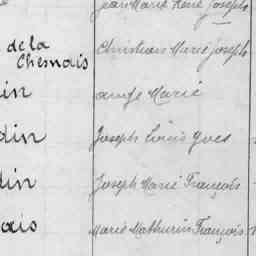 Jean Marie René Joseph
de la Chesnais Christian Marie Joseph
din ange Marie
din Joseph Louis Yves
din Joseph Marie François
ais Marie Mathurin François